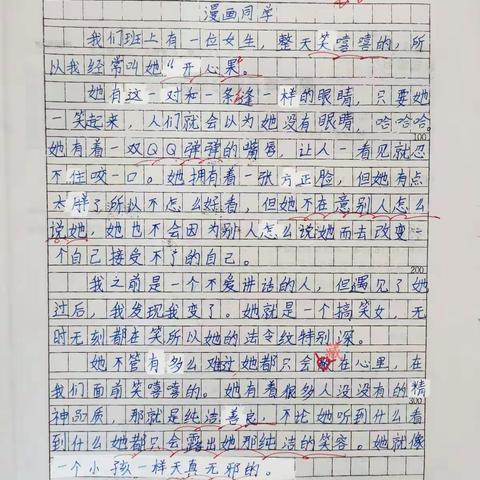 漫画同学
我们班上有一位女生，整天笑嘻嘻的，所
以我经常叫她“开心果”。
她有这一对和一条缝一样的眼睛，只要她
一笑起来，人们就会以为她没有眼睛，哈哈哈。
100
她有着一双QQ弹弹的嘴唇，让人一看见就忍
不住咬一口。她拥有着一张方正脸，但她有点
太胖了所以不怎么好看，但她不在意别人怎么
说她，她也不会因为别人怎么说她而去改变一
个自己接受不了的自己。
200
我之前是一个不爱讲话的人，但遇见了她
过后，我发现我变了。她就是一个搞笑女，无
时无刻都在笑所以她的法令纹特别深。
她不管有多么难过她都只会藏在心里，在
我们面前笑嘻嘻的。她有着很多人没没有的精
300
神品质，那就是纯洁善良，不论她听到什么看
到什么她都只会露出她那纯洁的笑容。她就像
一个小孩一样天真无邪的。